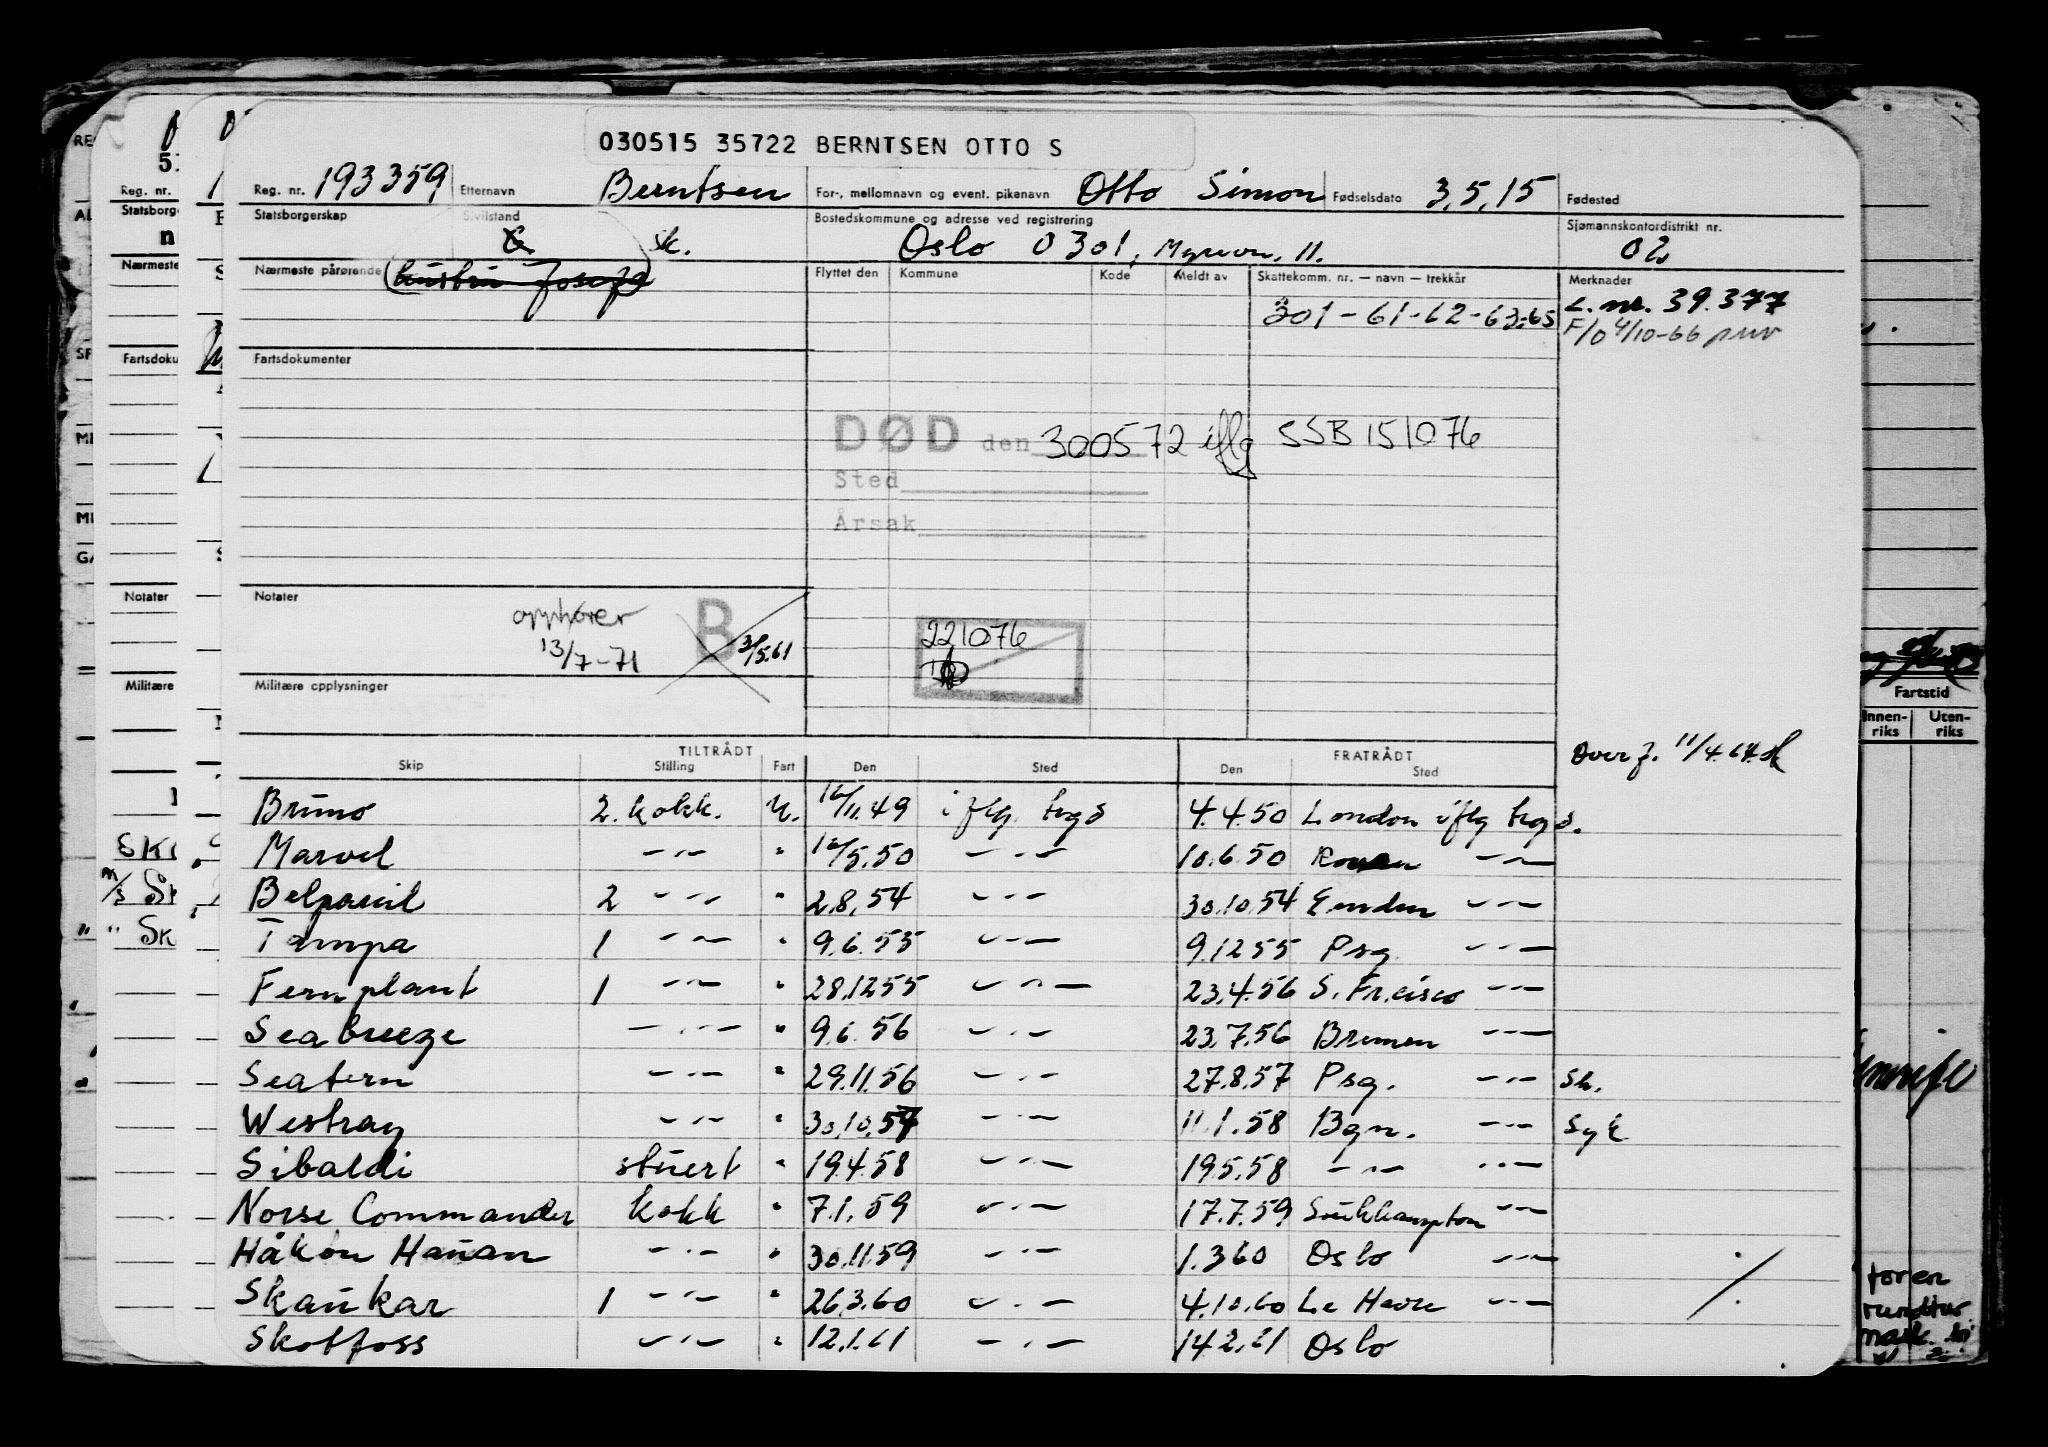 030515 35722 BERNTSEN OTTO S
Reg. nr. 193359 Etternavn Berntsen For-, mellomnavn og event. pikenavn Otto Simon Fødselsdato 3.5.15 Fødested
Statsborgerskap Sivilstand sk. Bostedskommune og adresse ved registrering Oslo 0301, 11. Sjømannskontordistrikt nr. 02
Nærmeste pårørende hustru Josefa Flyttet den Kommune Kode Meldt av Skattekomm. nr. — navn — trekkår Merknader
301-61-62-63-65 L.nr. 39.377
F/o 4/10-66
Fartsdokumenter
DØD den 300572 iflg SSB 151076
Sted
Årsak
Notater opphører B 3/5.61 221076
13/7-71
Militære opplysninger
TILTRÅDT FRATRÅDT Over f. 11/4.64
Skip Stilling Fart Den Sted Den Sted
Bruno 2. kokk. U. 16/11.49 iflg. trgs 4.4.50 London iflg trgs.
Marvel — " — " 16/5.50 — " — 10.6.50 Rouen — " —
Belpareil 2 — " — " 2.8.54 — " — 30.10.54 Emden — " —
Tampa 1 — " — " 9.6.55 — " — 9.12 55 Psg. — " —
Fernplant 1 — " — " 28.12 55 — " — 23.4.56 S. Fr.cisco — " —
Seabreeze — " — " 9.6.56 — " — 23.7.56 Bremen — " —
Seatern — " — " 29.11.56 — " — 27.8.57 Psg. — " — Sk.
Westray — " — " 30.10.57 — " — 11.1.58 Bgn. — " — Syk
Sibaldi stuert " 19.4.58 — " — 19.5.58 — " — — " —
Norse Commander kokk " 7.1.59 — " — 17.7.59 Southhampton — " —
Håkon Hauan — " — " 30.11.59 — " — 1.3 60 Oslo — " —
Skaukar 1 — " — " 26.3.60 — " — 4.10.60 Le Havre — " —
Skotfoss — " — " 12.1.61 — " — 14.2.61 Oslo
Reg. nr.
Fartsdoku
Notater
Militære
Fartstid
Innen-riks Uten-riks